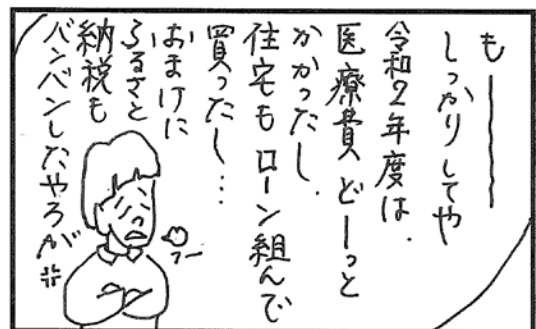 もーーー
しっかりしてや
令和2年度は、
医療費どーっと
かかったし、
住宅もローン組んで
買ったし…
おまけに
ふるさと
納税も
バンバンしたやろが
フー